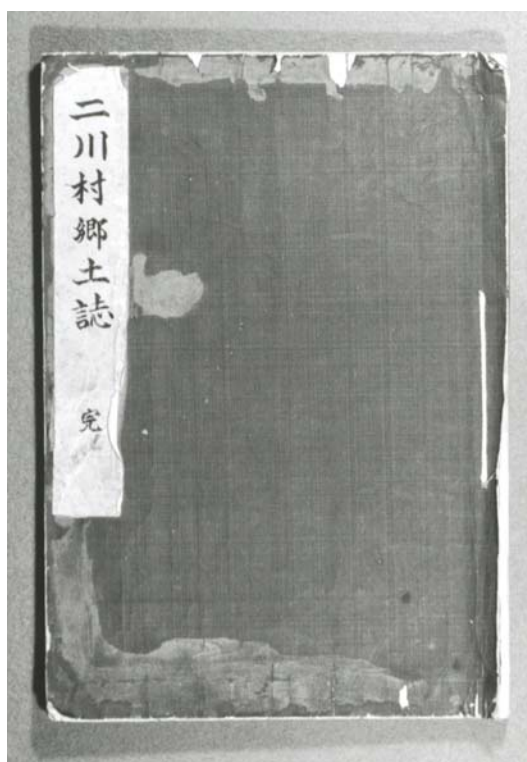 二川村郷土誌
完